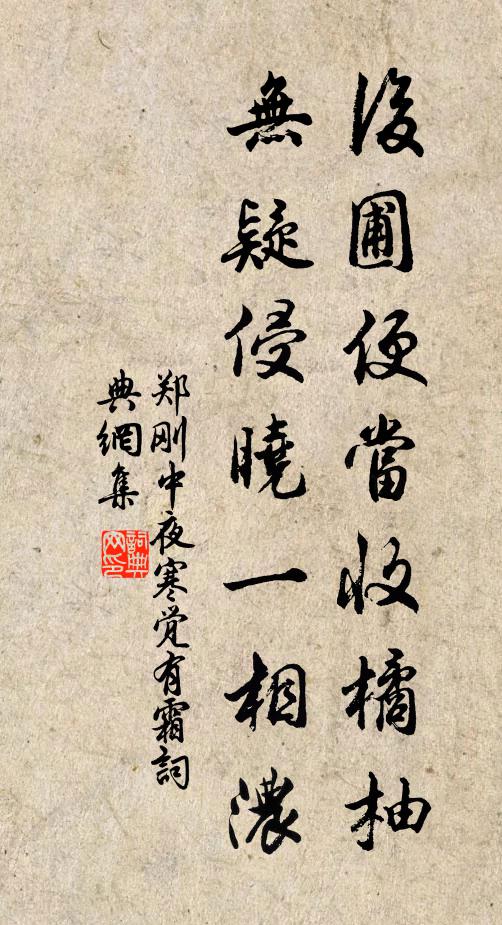 後圃便當收橘柚
無疑侵曉一相濃
郑刚中夜寒觉有霜詞
典網集
詞典
网印